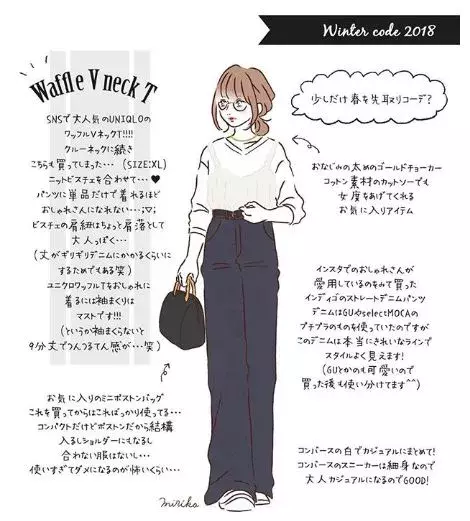 Winter code 2018
Waffle V neck T
SNSで大人気のUNIQLOの
ワッフルVネックT!!!!
クルーネックに続き
こちらも買ってしまった… (SIZE:XL)
ニットビスチェを合わせて…♥
パンツに単品だけで着れるほど
おしゃれさんになれない…;♡;
ビスチェの肩紐はちょっと肩落として
大人っぽく…
(丈がギリギリデニムにかかるくらいに
するためでもある笑)
ユニクロワッフルTをおしゃれに
着るには袖まくりは
マストです!!!
(というか袖まくらないと
9分丈でつんつるてん感が…笑)
お気に入りのミニボストンバッグ
これを買ってからはこればっかり使ってる…
コンパクトだけどボストンだから結構
入るしショルダーにもなるし
合わない服はないし…
使いすぎてダメになるのが怖いくらい…
少しだけ春を先取りコーデ?
おなじみの太めのゴールドチョーカー
コットン素材のカットソーでも
女度をあげてくれる
お気に入りアイテム
インスタでのおしゃれさんが
愛用しているのをみて買った
インディゴのストレートデニムパンツ
デニムはGUやselectMOCAの
プチプラのものを使っていたのですが
このデニムは本当にきれいなラインで
スタイルよく見えます!
(GUとかのも可愛いので
買った後も使い分けてます^^)
コンバースの白でカジュアルにまとめて!
コンバースのスニーカーは細身なので
大人カジュアルになるのでGOOD!
miriko